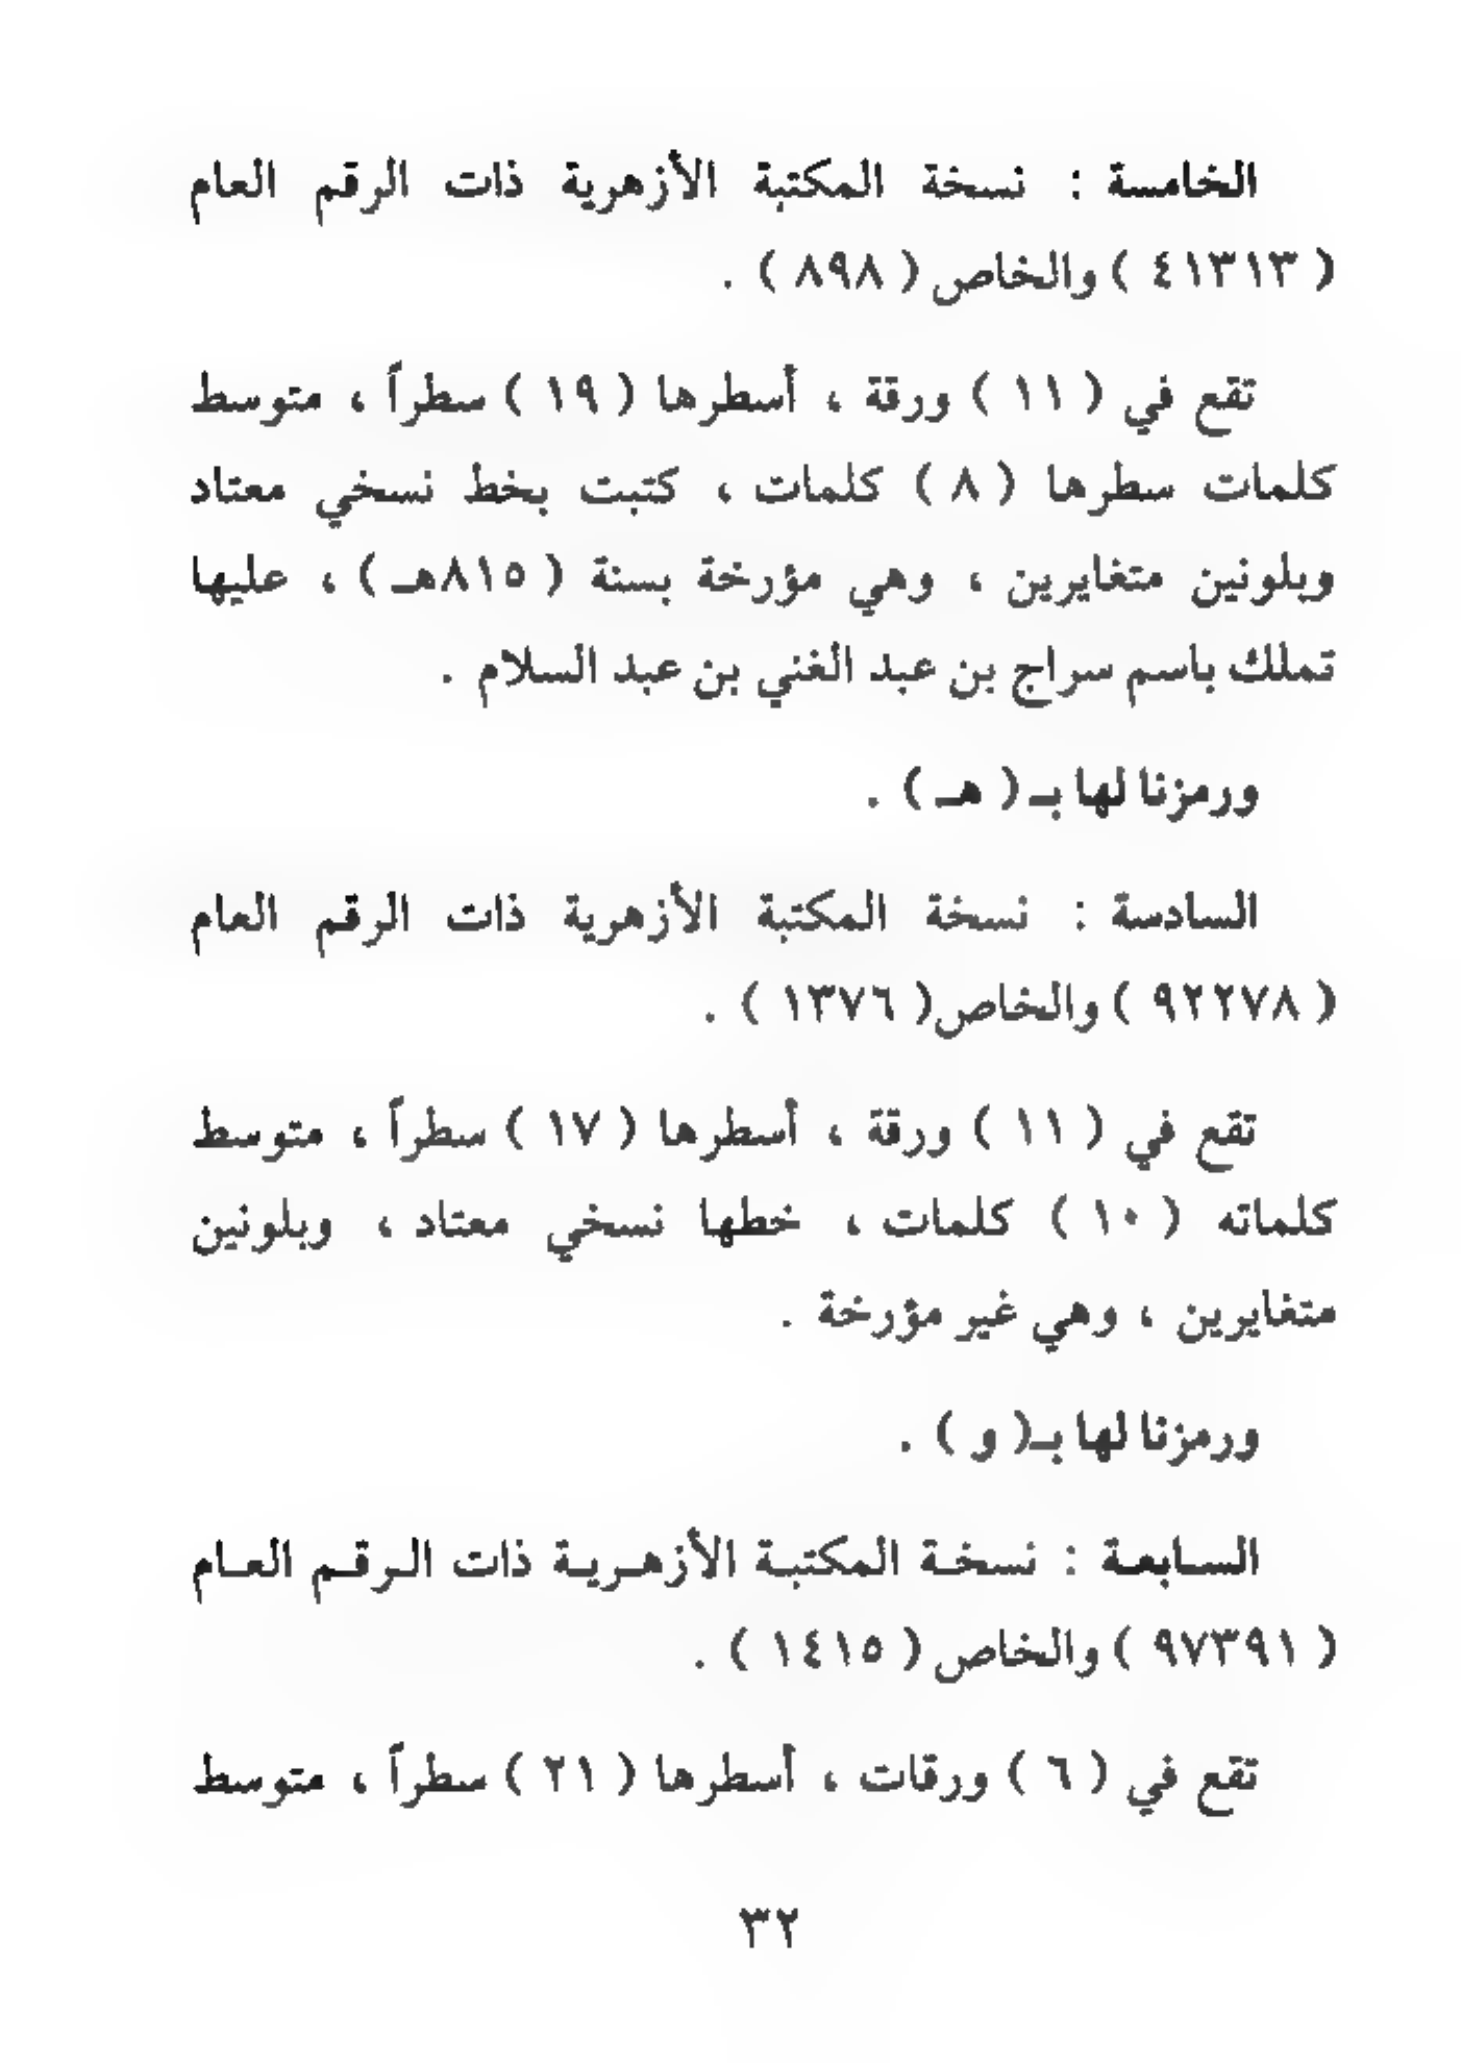 الخامسة : نسخة المكتبة الأزهرية ذات الرقم العام
( ٤١٣١٣ ) والخاص ( ٨٩٨ ) .
تقع في ( ١١ ) ورقة ، أسطرها ( ١٩ ) سطراً ، متوسط
كلمات سطرها ( ٨ ) كلمات ، كتبت بخط نسخي معتاد
وبلونين متغايرين ، وهي مؤرخة بسنة ( ٨١٥هـ ) ، عليها
تملك باسم سراج بن عبد الغني بن عبد السلام .
ورمزنا لها بـ ( هـ ) .
السادسة : نسخة المكتبة الأزهرية ذات الرقم العام
( ٩٢٢٧٨ ) والخاص( ١٣٧٦ ) .
تقع في ( ١١ ) ورقة ، أسطرها ( ١٧ ) سطراً ، متوسط
كلماته ( ١٠ ) كلمات ، خطها نسخي معتاد ، وبلونين
متغايرين ، وهي غير مؤرخة .
ورمزنا لها بـ( و ) .
السـابعـة : نسخـة المكتبـة الأزهـريـة ذات الـرقـم العـام
( ٩٧٣٩١ ) والخاص ( ١٤١٥ ) .
تقع في ( ٦ ) ورقات ، أسطرها ( ٢١ ) سطراً ، متوسط
٣٢